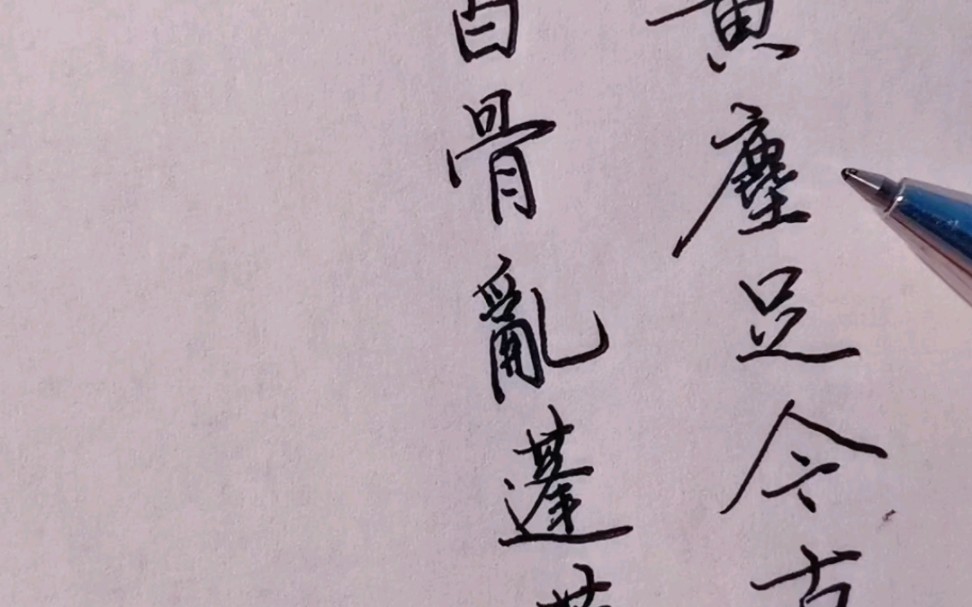 黄塵足今古
白骨亂蓬